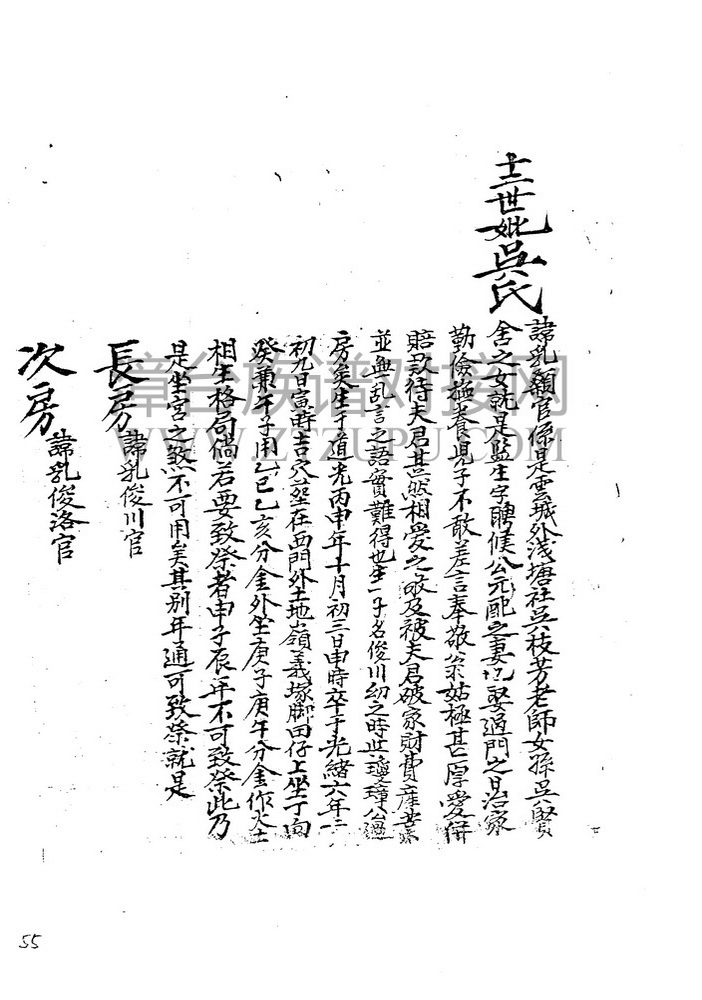 十二世妣吳氏
諱乳額官係是雲城外浅塘社吳枝芳老師女孫吳賢
舍之女就是監生字聘候公元配之妻凡娶過門之日治家
勤儉撫養児子不敢差言奉敬翁姑極甚厚愛併
賠款待夫君甚然相愛之敬及被夫君破家財費産業
並無乱言之語實難得也生一子名俊川幼之時出瓊璋公過
房矣生于道光丙申年十月初三日申時卒于光緒六年二
初九日富時吉穴塟在西門外土地嶺義塚脚田仔上坐丁向
癸兼午子用乙巳乙亥分金外坐庚子庚午分金作火土
相生格局倘若要致祭者申子辰年不可致祭此乃
是坐宮之煞不可用矣其别年通可致祭就是
長房 諱乳俊川官
次房 諱乳俊洛官
章台族谱对接网
WWW.ZTZUPU.COM
55